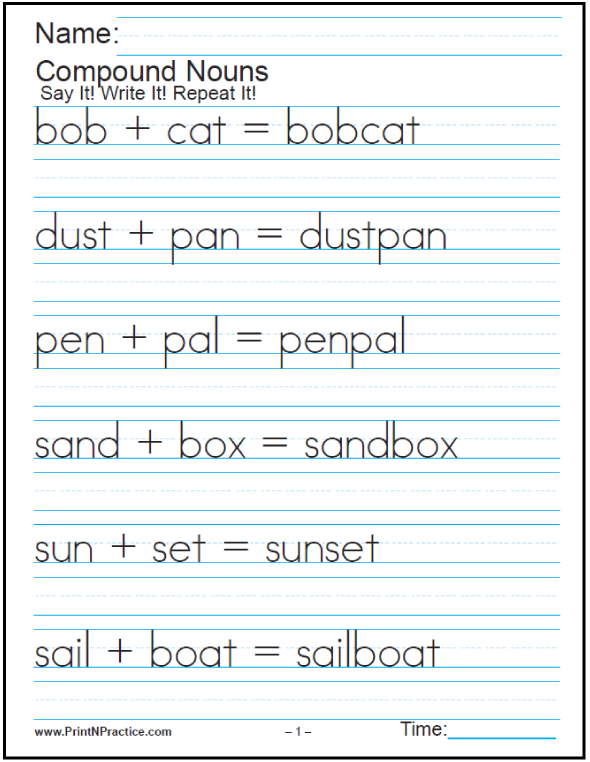 Name:
Compound Nouns
Say It! Write It! Repeat It!
bob + cat = bobcat
dust + pan = dustpan
pen + pal = penpal
sand + box = sandbox
sun + set = sunset
sail + boat = sailboat
www.PrintNPractice.com – 1 – Time: